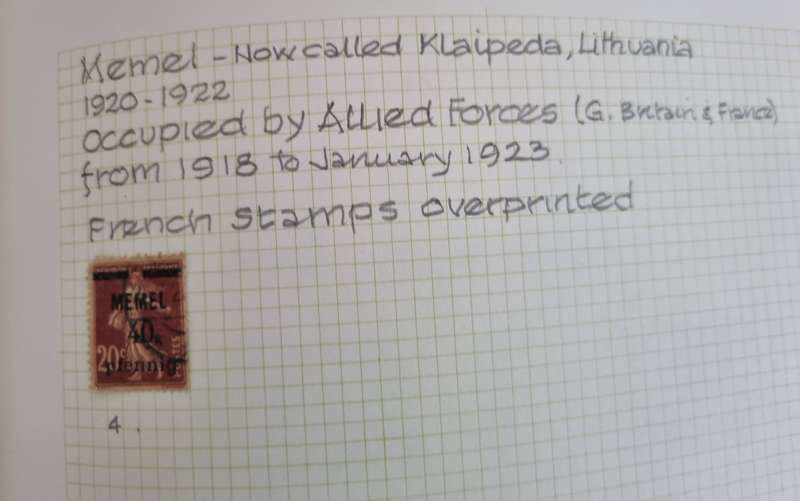 Memel - Now called Klaipeda, Lithuania
1920 - 1922
occupied by Allied Forces (G. Britain & France)
from 1918 to January 1923.
French stamps overprinted
MEMEL
40
20c
pfennig
4.